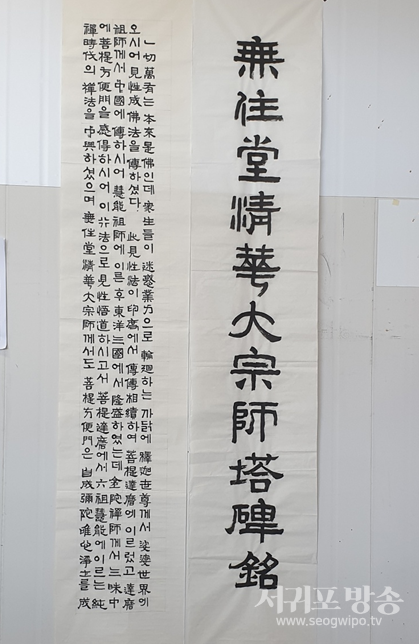 無住堂清華大宗師塔碑銘
一切萬有는 本來是佛인데 衆生들이 迷惑業力으로 輪廻하는 까닭에 釋迦世尊께서 娑婆世界에
오시어 見性成佛法을 傳하셨다. 此見性法이 印度에서 傳傳相續하여 菩提達磨에 이르렀고 達磨
祖師께서 中國에 傳하시어 慧能祖師에 이른 後 東洋三國에서 隆盛하였는데 金陀禪師께서 三昧中
에 菩提方便門을 感得하시어 이 行法으로 見性悟道하시고서 菩提達磨에서 六祖慧能에 이르는 純
禪時代의 禪法을 中興하셨으며 無住堂清華大宗師께서도 菩提方便門은 自成彌陀唯心淨土를 成
서귀포방송
www.seogwipo.tv